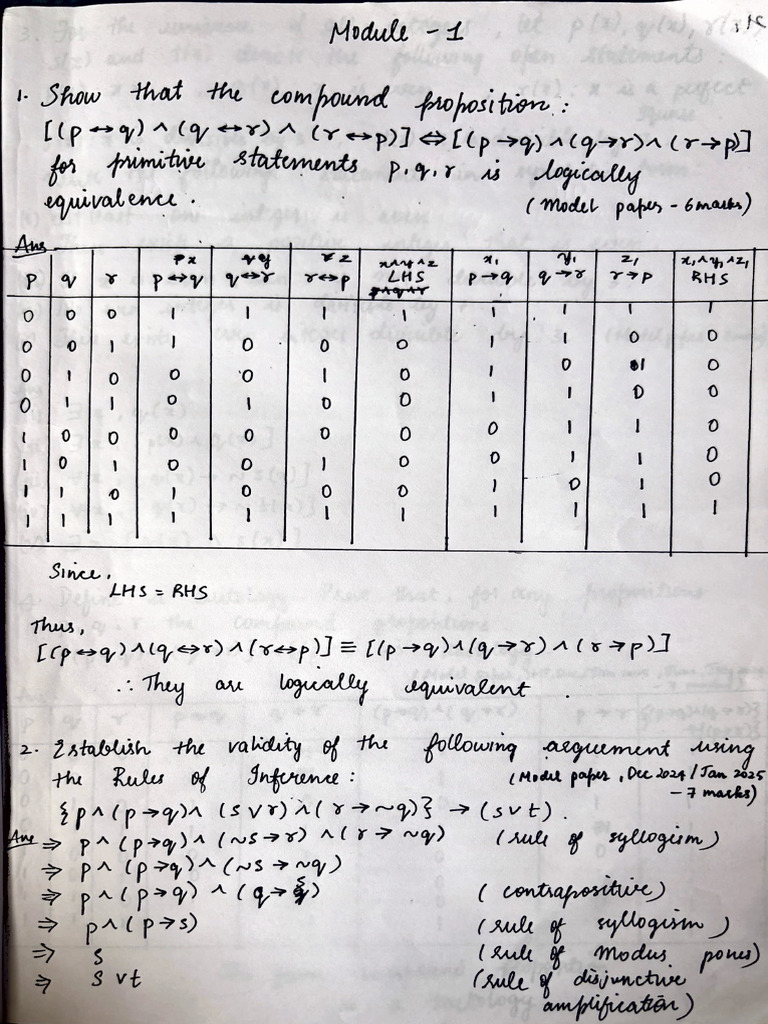 Module - 1
1. Show that the compound proposition:
[(p ↔ q) ∧ (q ↔ r) ∧ (r ↔ p)] ⇔ [(p → q) ∧ (q → r) ∧ (r → p)]
for primitive statements p, q, r is logically
equivalence.
(Model paper - 6 marks)
Ans
x y z x∧y∧z x₁ y₁ z₁ x₁∧y₁∧z₁
p q r p↔q q↔r r↔p LHS p→q q→r r→p RHS
0 0 0 1 1 1 1 1 1 1 1
0 0 1 1 0 0 0 1 1 0 0
0 1 0 0 0 1 0 1 0 1 0
0 1 1 0 1 0 0 1 1 0 0
1 0 0 0 1 0 0 0 1 1 0
1 0 1 0 0 1 0 0 1 1 0
1 1 0 1 0 0 0 1 0 1 0
1 1 1 1 1 1 1 1 1 1 1
Since,
LHS = RHS
Thus,
[(p ↔ q) ∧ (q ↔ r) ∧ (r ↔ p)] ≡ [(p → q) ∧ (q → r) ∧ (r → p)]
∴ They are logically equivalent.
2. Establish the validity of the following arguement using
the Rules of Inference:
(Model paper, Dec 2024 / Jan 2025
- 7 marks)
{p ∧ (p → q) ∧ (s ∨ r) ∧ (r → ~q)} → (s ∨ t).
Ans ⇒ p ∧ (p → q) ∧ (~s → r) ∧ (r → ~q) (rule of syllogism)
⇒ p ∧ (p → q) ∧ (~s → ~q)
⇒ p ∧ (p → q) ∧ (q → s) (contrapositive)
⇒ p ∧ (p → s) (rule of syllogism)
⇒ s (rule of Modus pones)
⇒ s ∨ t (rule of disjunctive
amplification)